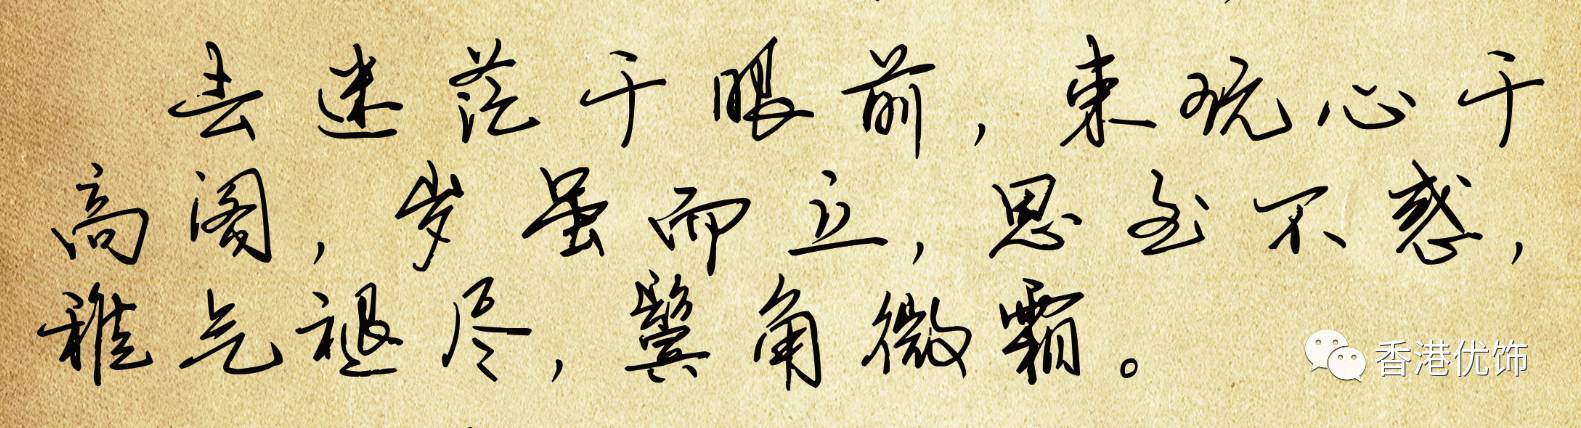 去迷茫于眼前，束玩心于
高阁，岁虽而立，思至不惑，
稚气褪尽，鬓角微霜。
香港优饰